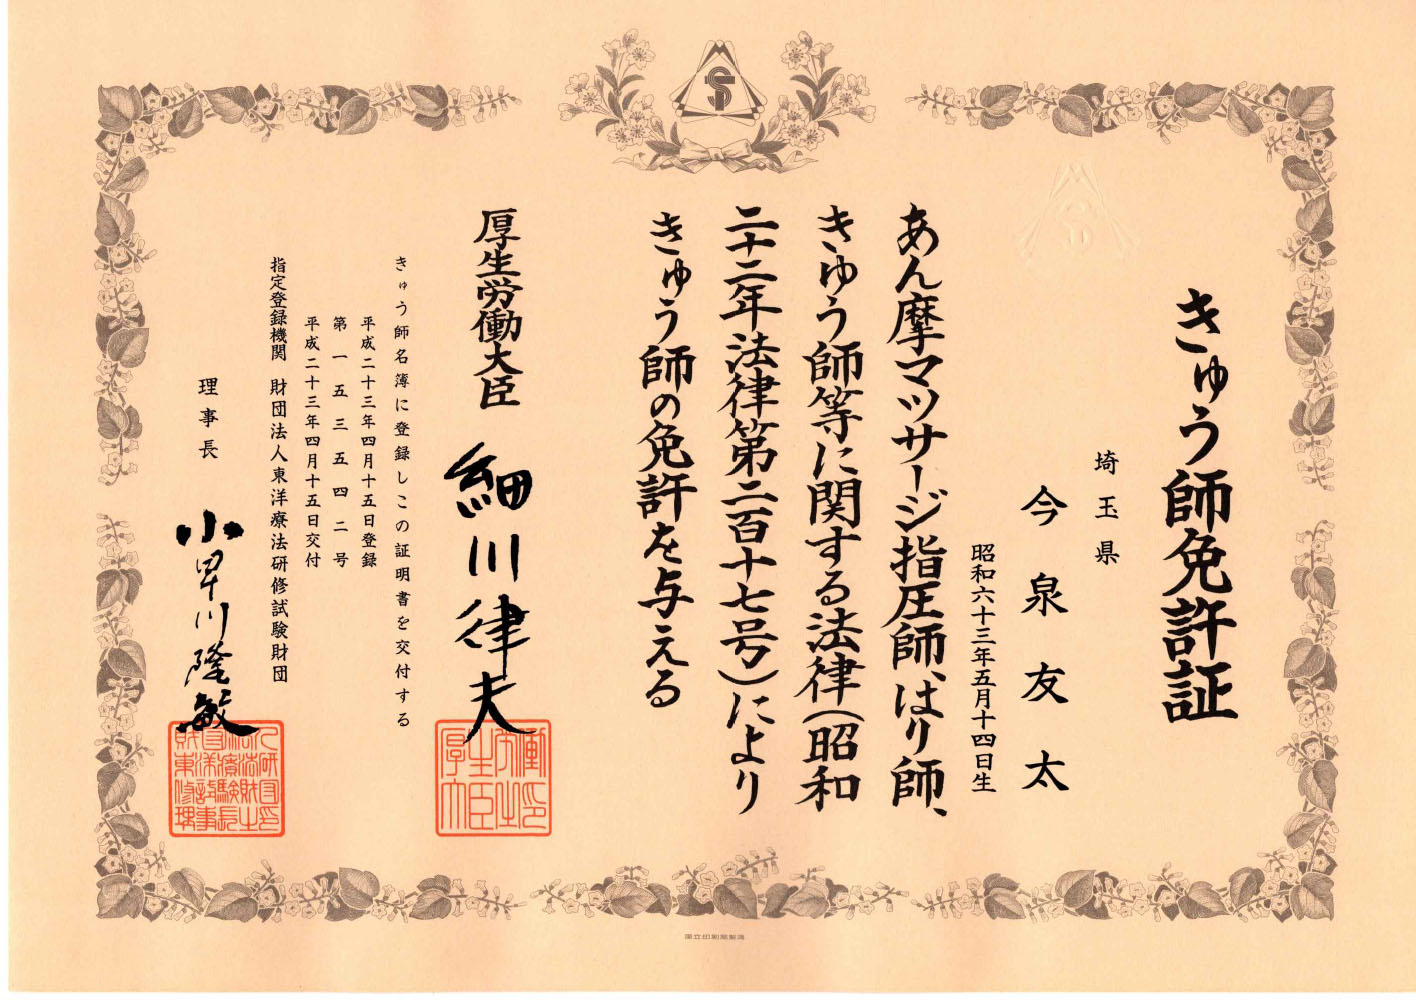 きゅう師免許証
埼玉県
今泉友太
昭和六十三年五月十四日生
あん摩マツサージ指圧師、はり師、
きゆう師等に関する法律(昭和
二十二年法律第二百十七号)により
きゅう師の免許を与える
厚生労働大臣 細川律夫
きゅう師名簿に登録しこの証明書を交付する
平成二十三年四月十五日登録
第一五三五四二号
平成二十三年四月十五日交付
指定登録機関 財団法人東洋療法研修試験財団
理事長 小早川隆敏
厚生労働大臣之印
国立印刷局製造